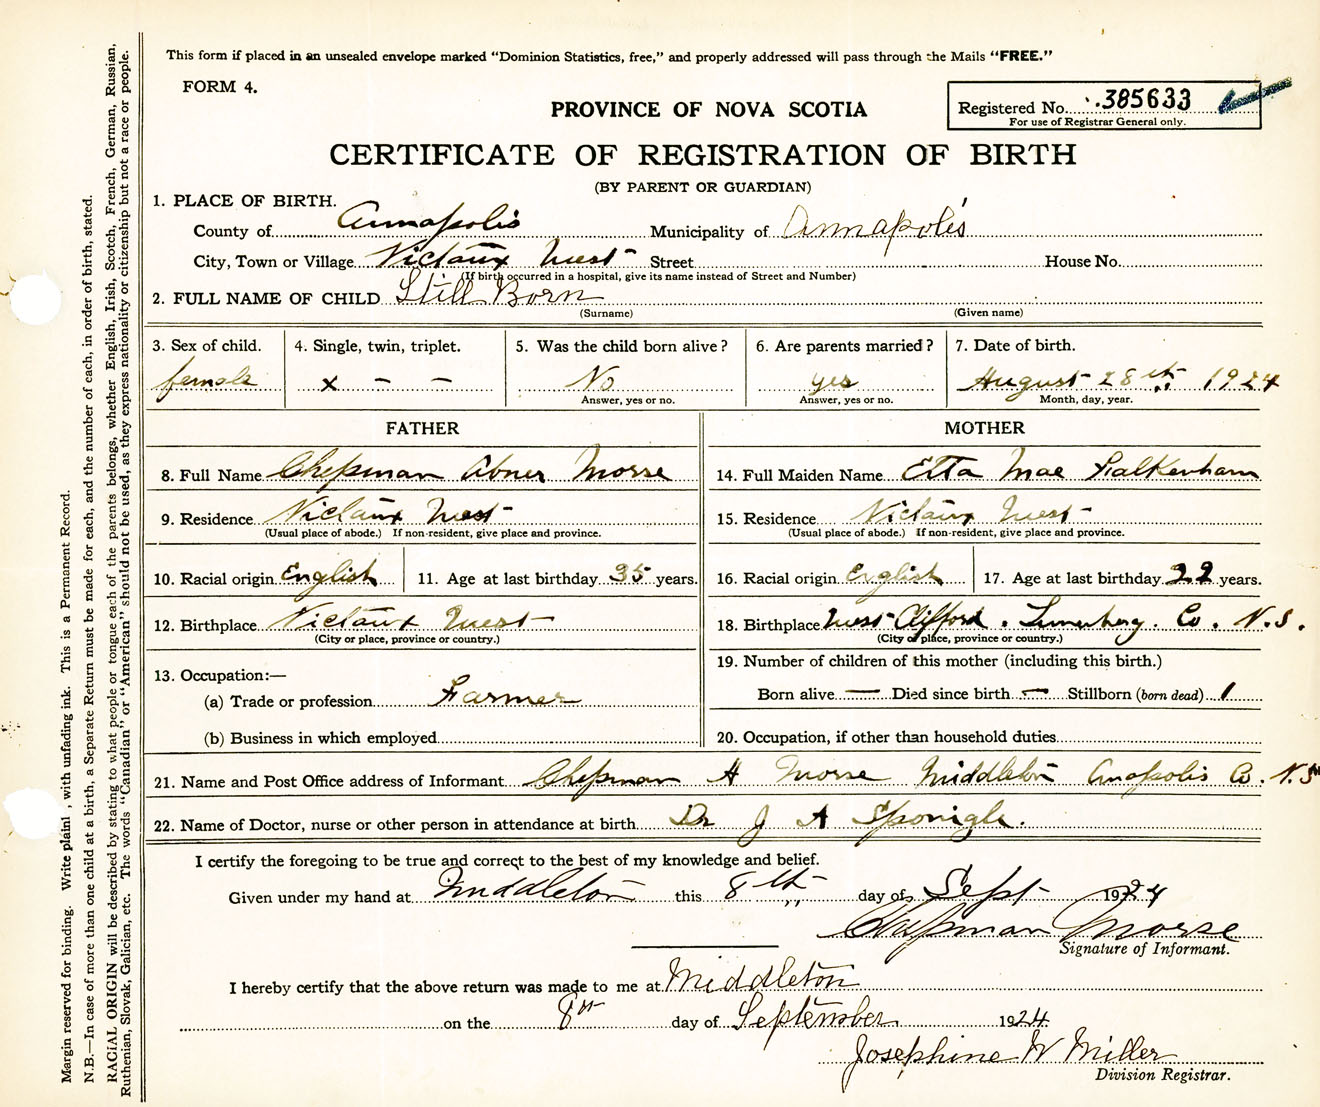 This form if placed in an unsealed envelope marked "Dominion Statistics, free," and properly addressed will pass through the Mails "FREE."
FORM 4.
Registered No. 385633
For use of Registrar General only.
PROVINCE OF NOVA SCOTIA
CERTIFICATE OF REGISTRATION OF BIRTH
(BY PARENT OR GUARDIAN)
1. PLACE OF BIRTH.
County of Annapolis Municipality of Annapolis
City, Town or Village Nictaux West Street House No.
(If birth occurred in a hospital, give its name instead of Street and Number)
2. FULL NAME OF CHILD Still Born
(Surname) (Given name)
3. Sex of child. 4. Single, twin, triplet. 5. Was the child born alive? 6. Are parents married? 7. Date of birth.
female x — — No yes August 28th 1924
Answer, yes or no. Answer, yes or no. Month, day, year.
FATHER MOTHER
8. Full Name Chepman Abner Morse 14. Full Maiden Name Etta Mae Falkenham
9. Residence Nictaux West 15. Residence Nictaux West
(Usual place of abode.) If non-resident, give place and province. (Usual place of abode.) If non-resident, give place and province.
10. Racial origin English 11. Age at last birthday 35 years. 16. Racial origin English 17. Age at last birthday 22 years.
12. Birthplace Nictaux West 18. Birthplace West Clifford. Lunenburg. Co. N.S.
(City or place, province or country.) (City or place, province or country.)
13. Occupation:— 19. Number of children of this mother (including this birth.)
(a) Trade or profession Farmer Born alive — Died since birth — Stillborn (born dead) 1
(b) Business in which employed 20. Occupation, if other than household duties
21. Name and Post Office address of Informant Chepman A Morse Middleton Anapolis Co. N.S
22. Name of Doctor, nurse or other person in attendance at birth Dr J A Sponagle.
I certify the foregoing to be true and correct to the best of my knowledge and belief.
Given under my hand at Middleton this 8th day of Sept 1924
Chapman Morse
Signature of Informant.
I hereby certify that the above return was made to me at Middleton
on the 8th day of September 1924
Josephine W Miller
Division Registrar.
Margin reserved for binding. Write plainl, with unfading ink. This is a Permanent Record.
N.B.—In case of more than one child at a birth, a Separate Return must be made for each, and the number of each, in order of birth, stated.
RACIAL ORIGIN will be described by stating to what people or tongue each of the parents belongs, whether English, Irish, Scotch, French, German, Russian,
Ruthenian, Slovak, Galician, etc. The words "Canadian" or "American" should not be used, as they express nationality or citizenship but not a race or people.